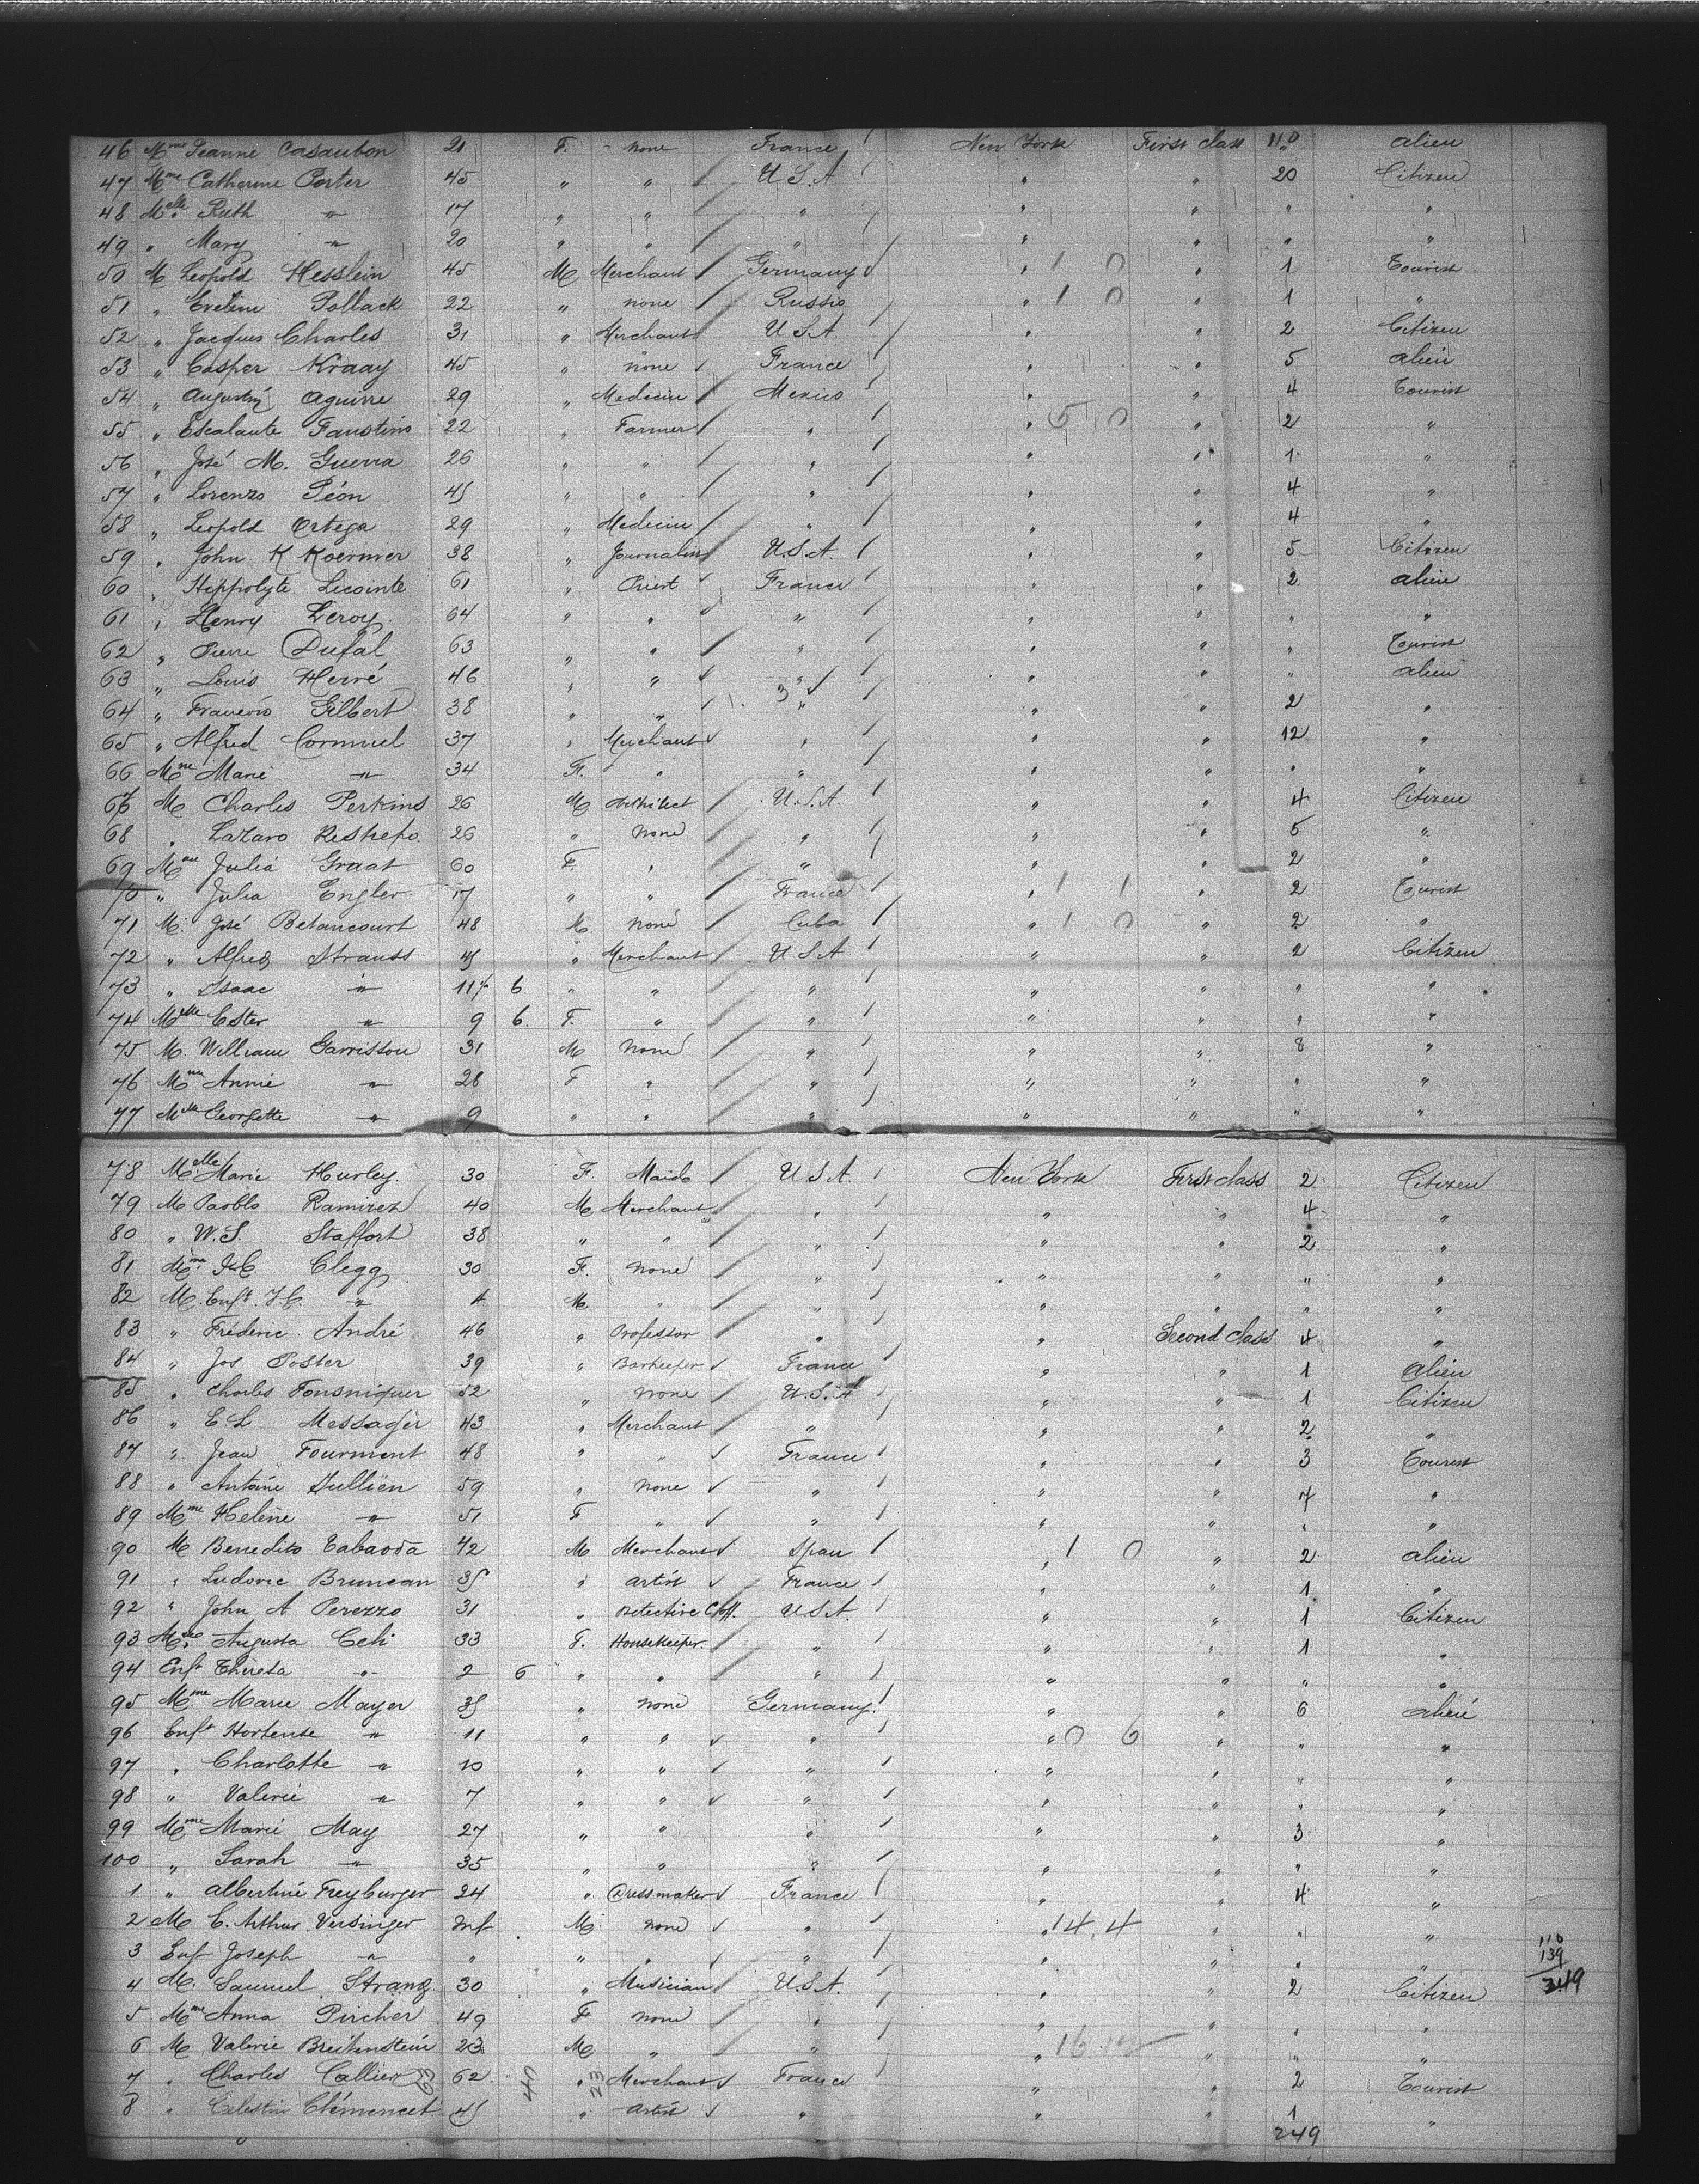 46 Mme Jeanne Casaubon 21 F. none France New York First class 110 alien
47 Mme Catherine Porter 45 " " U.S.A " " 20 Citizen
48 Melle Ruth " 17 " " " " " " "
49 " Mary " 20 " " " " " " "
50 M Leopold Hesslein 45 M Merchant Germany " 1 0 " 1 Tourist
51 " Eveline Pollack 22 " none Russia " 1 0 " 1 "
52 " Jacques Charles 31 " Merchant U.S.A. " " 2 Citizen
53 " Casper Kraay 45 " none France " " 5 alien
54 " Augustin Aguirre 29 " Medecin Mexico " " 4 Tourist
55 " Escalante Faustino 22 " Farmer " " 5 0 " 2 "
56 " José M. Guerra 26 " " " " " 1 "
57 " Lorenzo Péon 45 " " " " " 4 "
58 " Leopold Ortega 29 " Medecin " " " 4 "
59 " John K Koermer 38 " Journalist U.S.A. " " 5 Citizen
60 " Hippolyte Lecointe 61 " Priest France " " 2 alien
61 " Henry Leroy 64 " " " " " " "
62 " Pierre Dufal 63 " " " " " " Tourist
63 " Louis Hervé 46 " " " " " " alien
64 " François Gilbert 38 " " 3 " " " 2 "
65 " Alfred Cormuel 37 " Merchant " " " 12 "
66 Mme Marie " 34 F. " " " " " "
67 M Charles Perkins 26 M Architect U.S.A. " " 4 Citizen
68 " Lazaro Restrepo 26 " none " " " 5 "
69 Mme Julia Graat 60 F. " " " " 2 "
70 " Julia Engler 17 " " France " 1 1 " 2 Tourist
71 M. José Betancourt 48 M none Cuba " 1 0 " 2 "
72 " Alfred Strauss 45 " Merchant U.S.A " " 2 Citizen
73 " Isaac " 11 6 " " " " " " "
74 Melle Ester " 9 6. F. " " " " " "
75 M. William Garrisson 31 M none " " " 8 "
76 Mme Annie " 28 F " " " " " "
77 Melle Georgette " 9 " " " " " " "
78 Melle Marie Hurley. 30 F. Maid U.S.A. New York First class 2 Citizen
79 M Paoblo Ramirez 40 M Merchant " " " 4 "
80 " W.S. Staffort 38 " " " " " 2 "
81 Mme Clegg 30 F. none " " " " "
82 M. Enft. J.C. " 4 M. " " " " " "
83 " Fréderic André 46 " Professor " " Second class 4 "
84 " Jos Poster 39 " Barkeeper France " " 1 Alien
85 " Charles Fonsniquer 52 " none U.S.A " " 1 Citizen
86 " E.L Messager 43 " Merchant " " " 2 "
87 " Jean Fourment 48 " " France " " 3 Tourist
88 " Antoine Jullien 59 " none " " " 7 "
89 Mme Helène " 51 F " " " " " "
90 M Benedito Tabaoda 42 M Merchant Spain " 1 0 " 2 alien
91 " Ludovic Bruneau 35 " artist France " " 1 "
92 " John A Perezzo 31 " Detective U.S.A. " " 1 Citizen
93 Mme Augusta Celi 33 F. Housekeeper " " " 1 "
94 Enft Theresa " 2 6 " " " " " " "
95 Mme Marie Mayer 35 " none Germany " " 6 alien
96 Enft Hortense " 11 " " " " 0 6 " " "
97 " Charlotte " 10 " " " " " " "
98 " Valerie " 7 " " " " " " "
99 Mme Marie May 27 " " " " " 3 "
100 " Sarah " 35 " " " " " " "
1 " Albertine Freyburger 24 " Dressmaker France " " 4 "
2 M E. Arthur Versinger inf M none " " 14.4 " " "
3 Enf Joseph " " " " " " " " " 110
139
4 M. Samuel Stranz 30 " Musician U.S.A. " " 2 Citizen 249
5 Mme Anna Pircher 49 F none " " " " "
6 M Valerie Breitenstein 23 M " " " 16 " " "
7 " Charles Callier 62 " Merchant France " " 2 Tourist
8 " Celestin Clémencet 45 " artist " " " 1 "
249